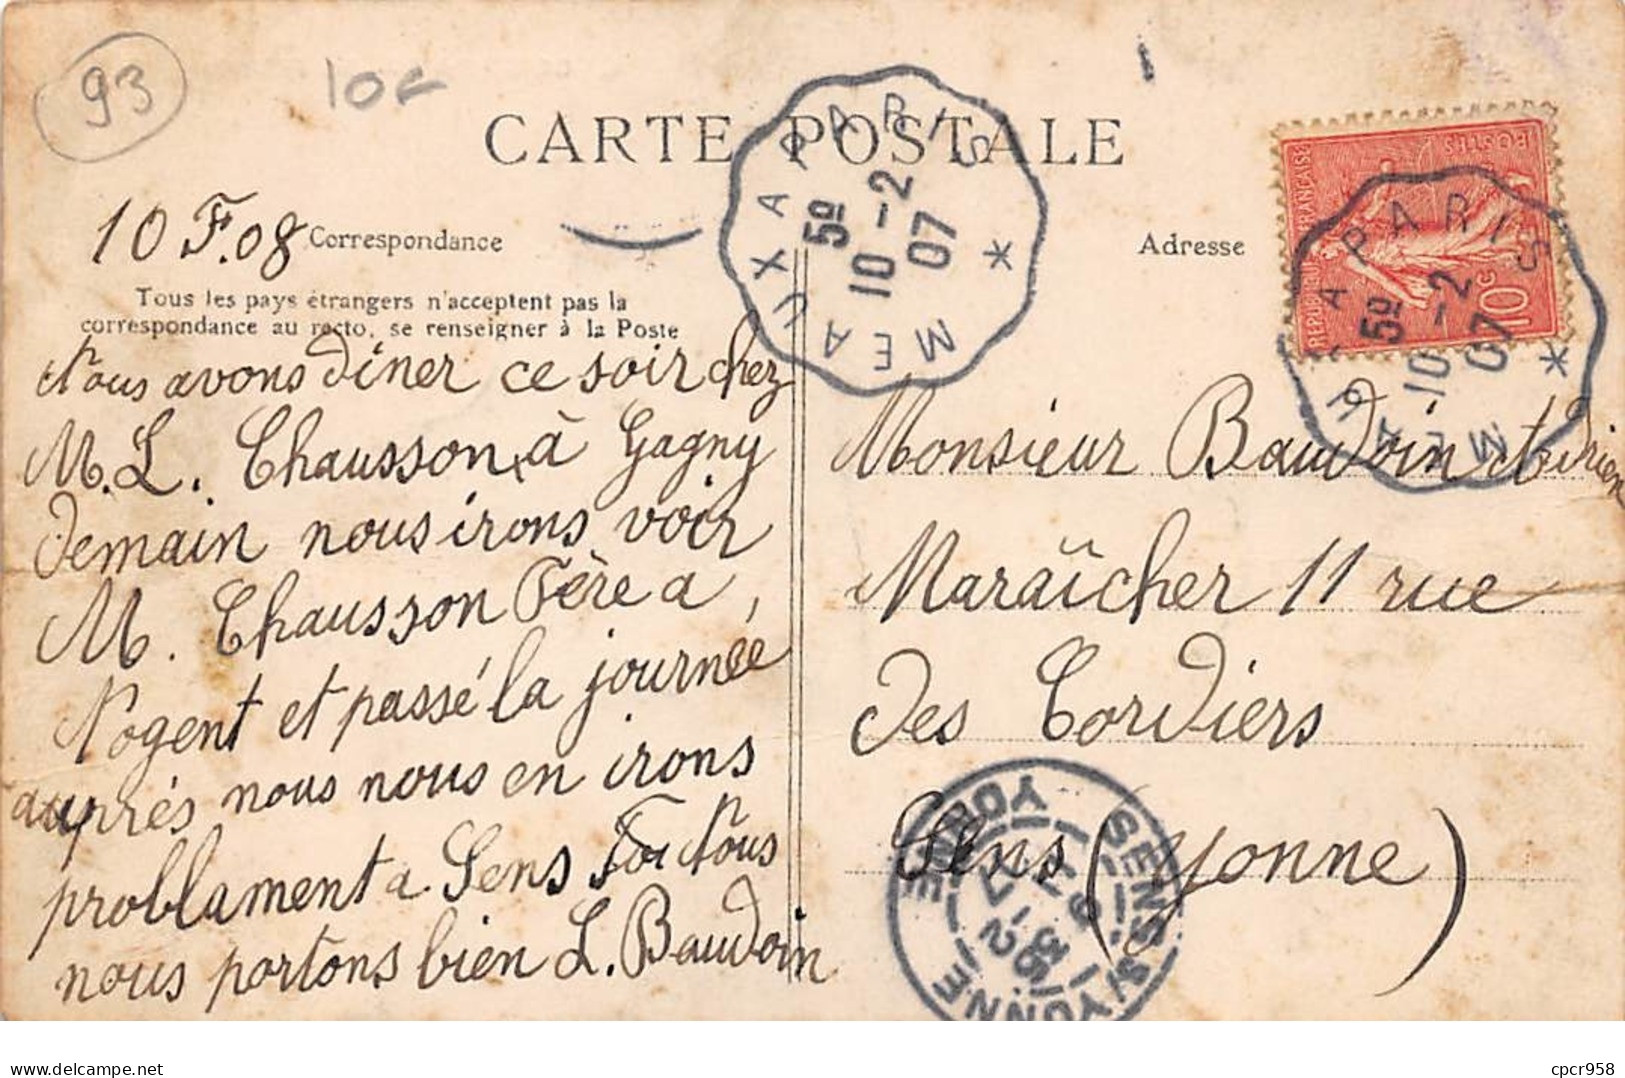 93
10€
CARTE POSTALE
MEAUX A PARIS *
5º
10 -2
07
POSTES
REPUBLIQUE FRANÇAISE
10c
MEAUX A PARIS *
5º
10 -2
07
10 F. 08 Correspondance
Adresse
Tous les pays étrangers n'acceptent pas la
correspondance au recto, se renseigner à la Poste
Nous avons diner ce soir chez
M. L. Chausson, à Gagny
Demain nous irons voir
M. Chausson Père a
Nogent et passé la journée
auprés nous nous en irons
problament a Sens Toi Nous
nous portons bien L. Baudoin
Monsieur Baudoin Adrien
Maraîcher 11 rue
Des Cordiers
Sens (Yonne)
SENS S/YONNE
YONNE
cpcr958